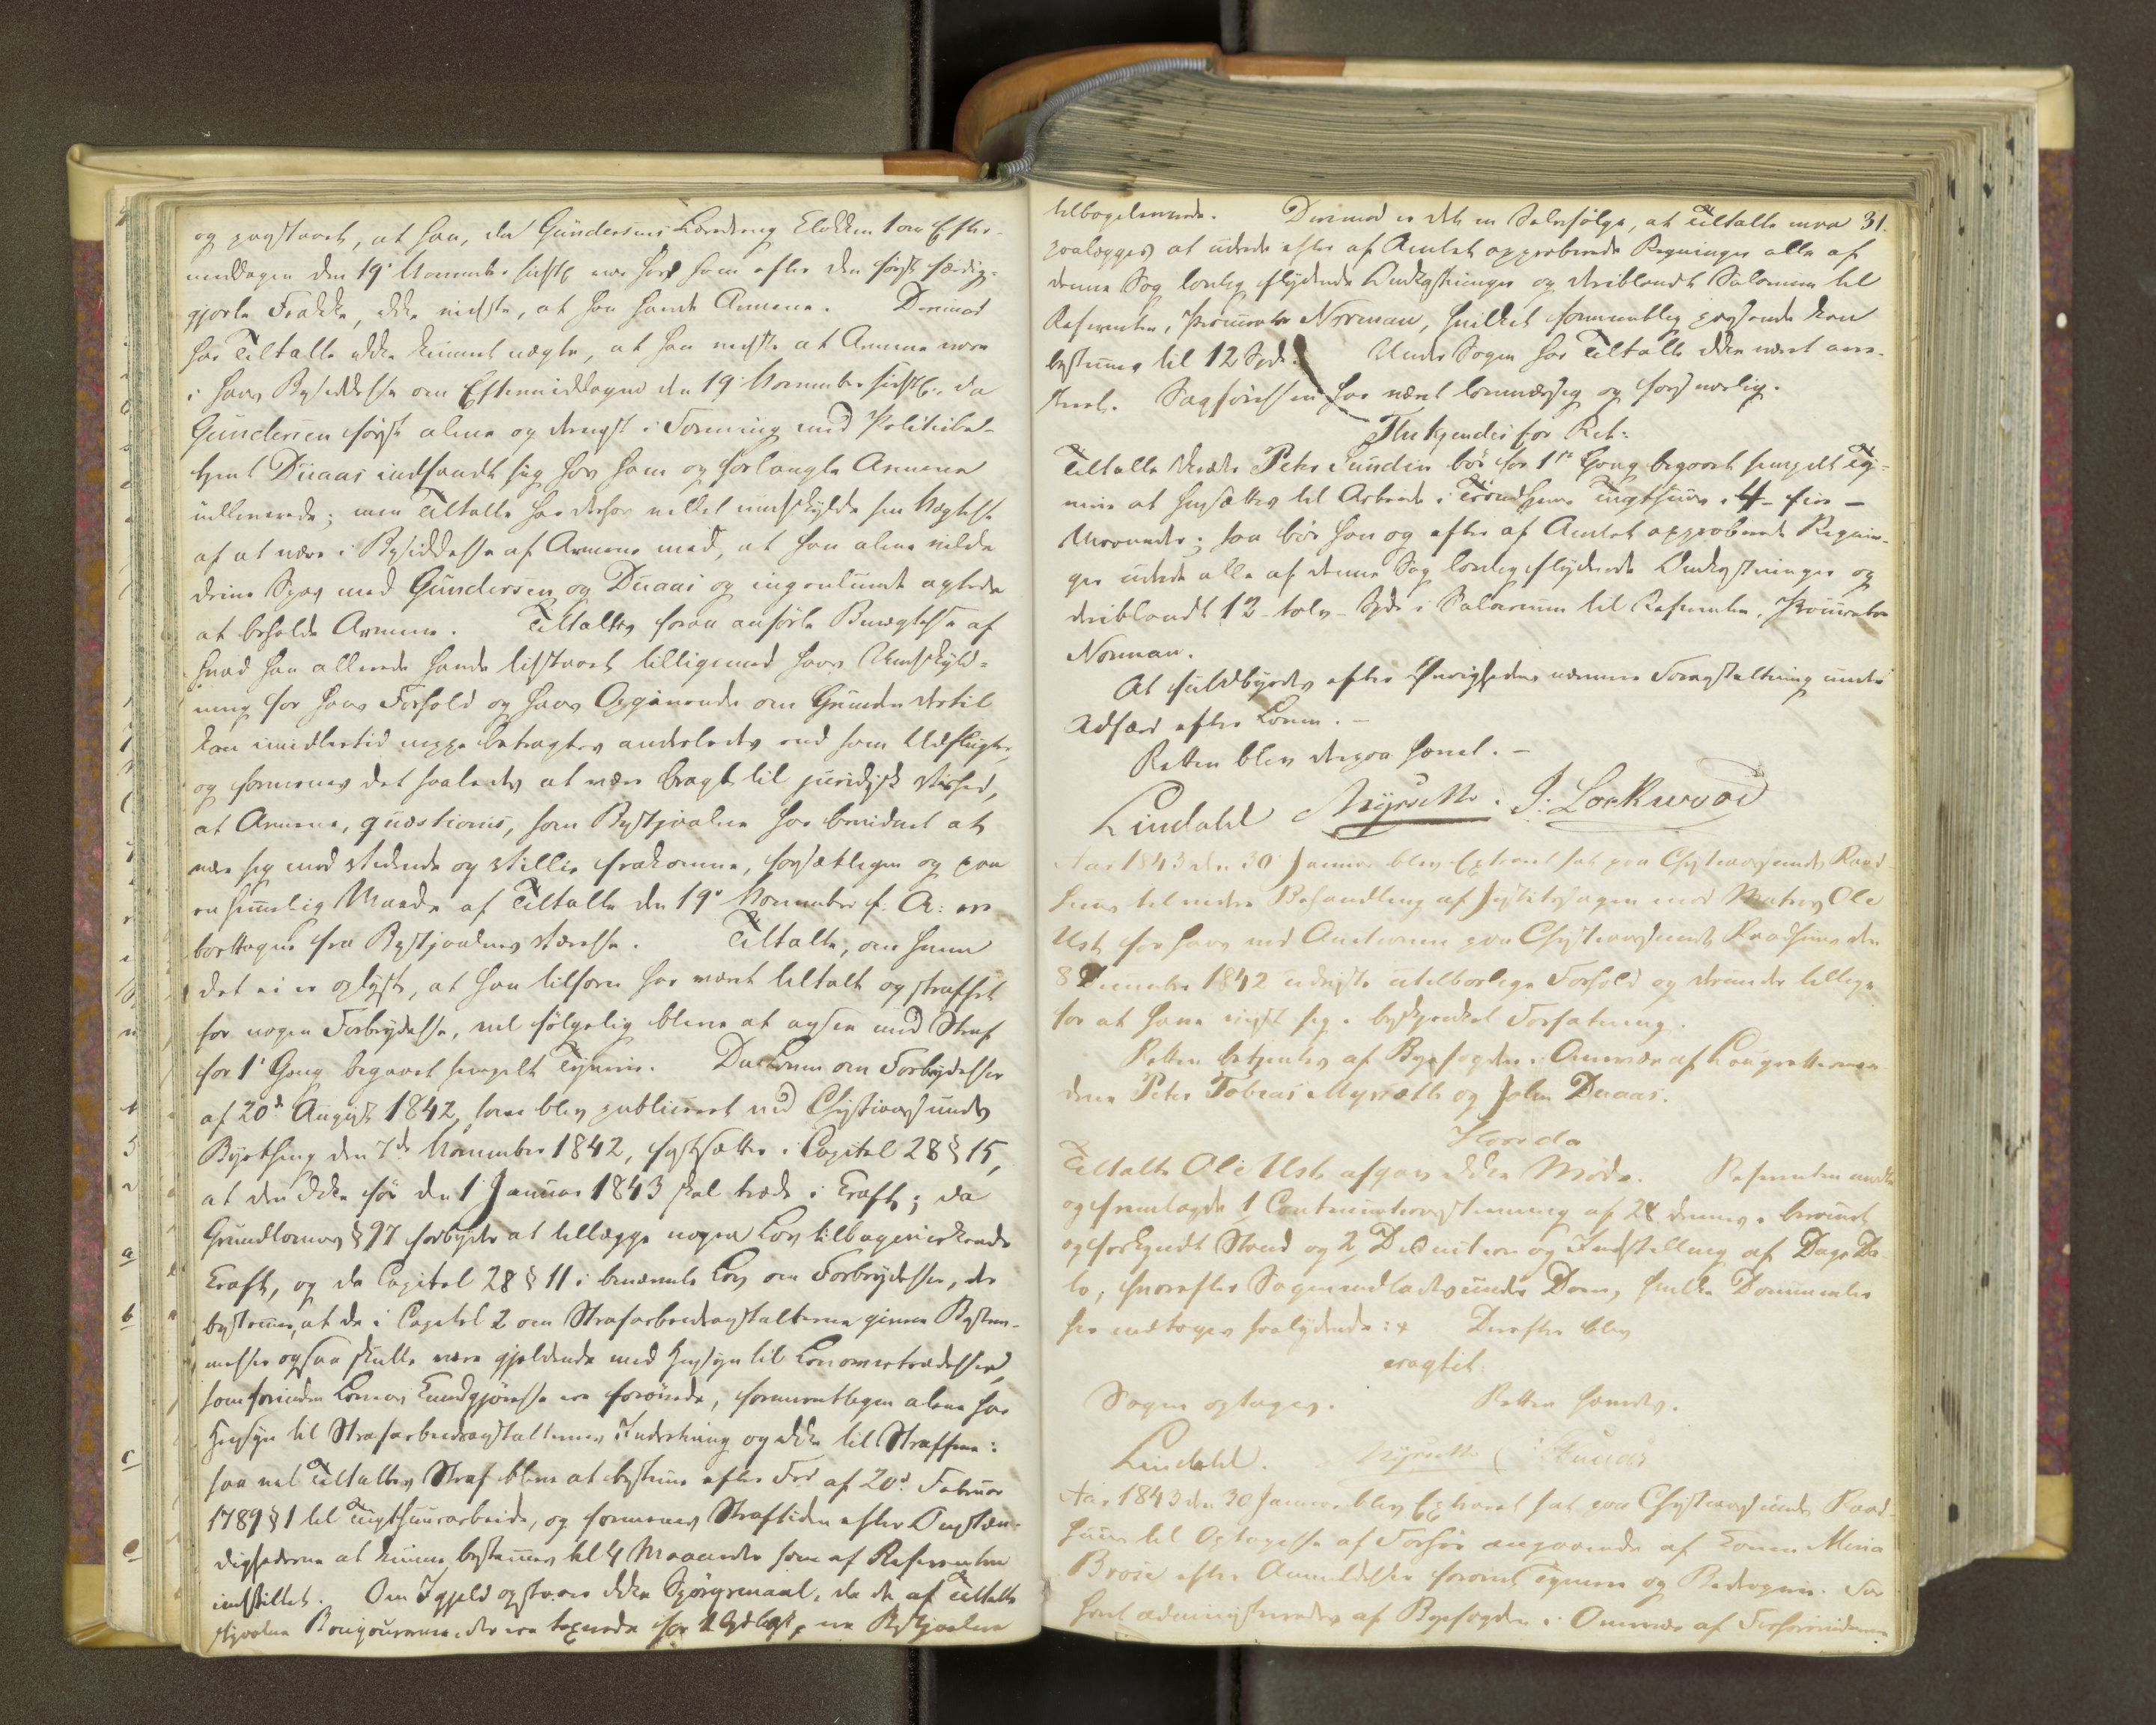 og paastaaet, at han, da Gundersens Læredreng Klokken 1 om Efter-
middagen den 19de November sidstl. var hos ham efter den færdig-
gjorte Frakke, ikke vidste, at han havde Ærmene. Derimod
har Tiltalte ikke kunnet nægte, at han vidste at Ærmene vare
i hans Besiddelse om Eftermiddagen den 19 November sidstl., da
Gundersen først alene og dernæst i Forening med Politibe-
tjent Duaas indfandt sig hos ham og forlangte Ærmene
udleverede; men Tiltalte har derfor villet undskylde sin Nægtelse
af at være i Besiddelse af Ærmene med, at han alene vilde
drive Spas med Gundersen og Duaas og ingenlunde agtede
at beholde Ærmene. Tiltaltes foran anførte Benægtelse af
hvad han allerede havde tilstaaet tilligemed hans Undskyld-
ning for hans Forhold og hans Opgivende om Grunden dertil
kan imidlertid neppe betragtes anderledes end som Udflugter,
og formenes det saaledes at være bragt til juridisk Vished,
at Ærmene, quæstionis, som Bestjaalne har beediget at
være sig mod Vidende og Villie frakomne, forsætligen og paa
en hemmelig Maade af Tiltalte den 19de November f. A. ere
borttagne fra Bestjaalnes Værelse. Tiltalte, om hvem
det ei er oplyst, at han tilforn har været tiltalt og straffet
for nogen Forbrydelse, vil følgelig blive at ansee med Straf
for 1ste Gang begaaet simpelt Tyverie. Da Loven om Forbrydelser
af 20de August 1842, som blev publiceret ved Christiansunds
Bything den 7de November 1842, fastsætter i Capitel 28 § 15,
at den ikke før den 1 Januar 1843 skal træde i Kraft; da
Grundlovens § 97 forbyder at tillægge nogen Lov tilbagevirkende
Kraft, og da Capitel 28 § 11 i benævnte Lov om Forbrydelser, der
bestemmer, at de i Capitel 2 om Strafarbeidsanstalterne givne Bestem-
melser ogsaa skulle være gjeldende med Hensyn til Lovovertrædelser,
som forinden Lovens Kundgjørelse ere forøvede, formeentligen alene har
Hensyn til Strafarbeidsanstalternes Indretning og ikke til Straffene:
saa vil Tiltaltes Straf blive at bestemme efter Fdr. af 20de Februar
1789 § 1 til Tugthuusarbeide, og formenes Straftiden efter Omstæn-
dighederne at kunne bestemmes til 4 Maaneder som af Referenten
indstillet. Om Igjeld opstaaer ikke Spørgsmaal, da de af Tiltalte
stjaalne Ærmer, der ere taxerede for ere Bestjaalne
tilbageleverede. Derimod er det en Selvfølge, at Tiltalte maa 31.
paalægges at udrede efter af Amtet approberede Regninger alle af
denne Sag lovlig flydende Omkostninger og deriblandt Salarium til
Referenten, Procurator Norman, hvilket formeentlig passende kan
bestemmes til 12 Spd. Under Sagen har Tiltalte ikke været arre-
steret. Sagførelsen har været lovmæssig og forsvarlig.
Thi kjendes for Ret:
Tiltalte Peter Sundin bør for 1ste Gang begaaet simpelt Ty-
verie at hensættes til Arbeide i Trondhjems Tugthuus i 4 – fire –
Maaneder; saa bør han og efter af Amtet approberede Regnin-
ger udrede alle af denne Sag lovlig flydende Omkostninger og
deriblandt 12 – tolv – Spd. i Salarium til Referenten, Procurator
Norman.
At fuldbyrdes efter Øvrighedens nærmere Foranstaltning under
Adfærd efter Loven. –
Retten blev derpaa hævet. –
Lindahl Myrseth. J: Lockwood
Aar 1843 den 30 Januar blev Extraret sat paa Christiansunds Raad-
huus til videre Behandling af Justitssagen mod Matros Ole
Ust for hans ved Auctionen paa Christiansunds Raadhuus den
8 December 1842 udviste utilbørlige Forhold og derunder tillige
for at have viist sig i beskjænket Forfatning.
Retten betjentes af Byefogden i Overvær af Laugrettesmæn-
dene Peter Tobias Myrseth og John Duaas.
Hvorda
Tiltalte Ole Ust afgav ikke Møde. Referenten mødte
og fremlagde 1, Continuationsstevning af 28 dennes i beroende
og forkyndt Stand og 2, Deduction og Indstilling af Dags Da-
to, hvorefter Sagen indlodes under Dom, hvilke Documenter
her indtages saalydende: + Derefter blev
eragtet:
Sagen optages. Retten hævedes.
Lindahl. Myrseth Duaas
Aar 1843 den 30 Januar blev Extraret sat paa Christiansunds Raad-
huus til Optagelse af Forhør angaaende af Konen Maria
Brose efter Anmeldelse forøvet Tyverie og Bedragerie. For-
høret administreredes af Byefogden i Overvær af Forhørsvidnerne